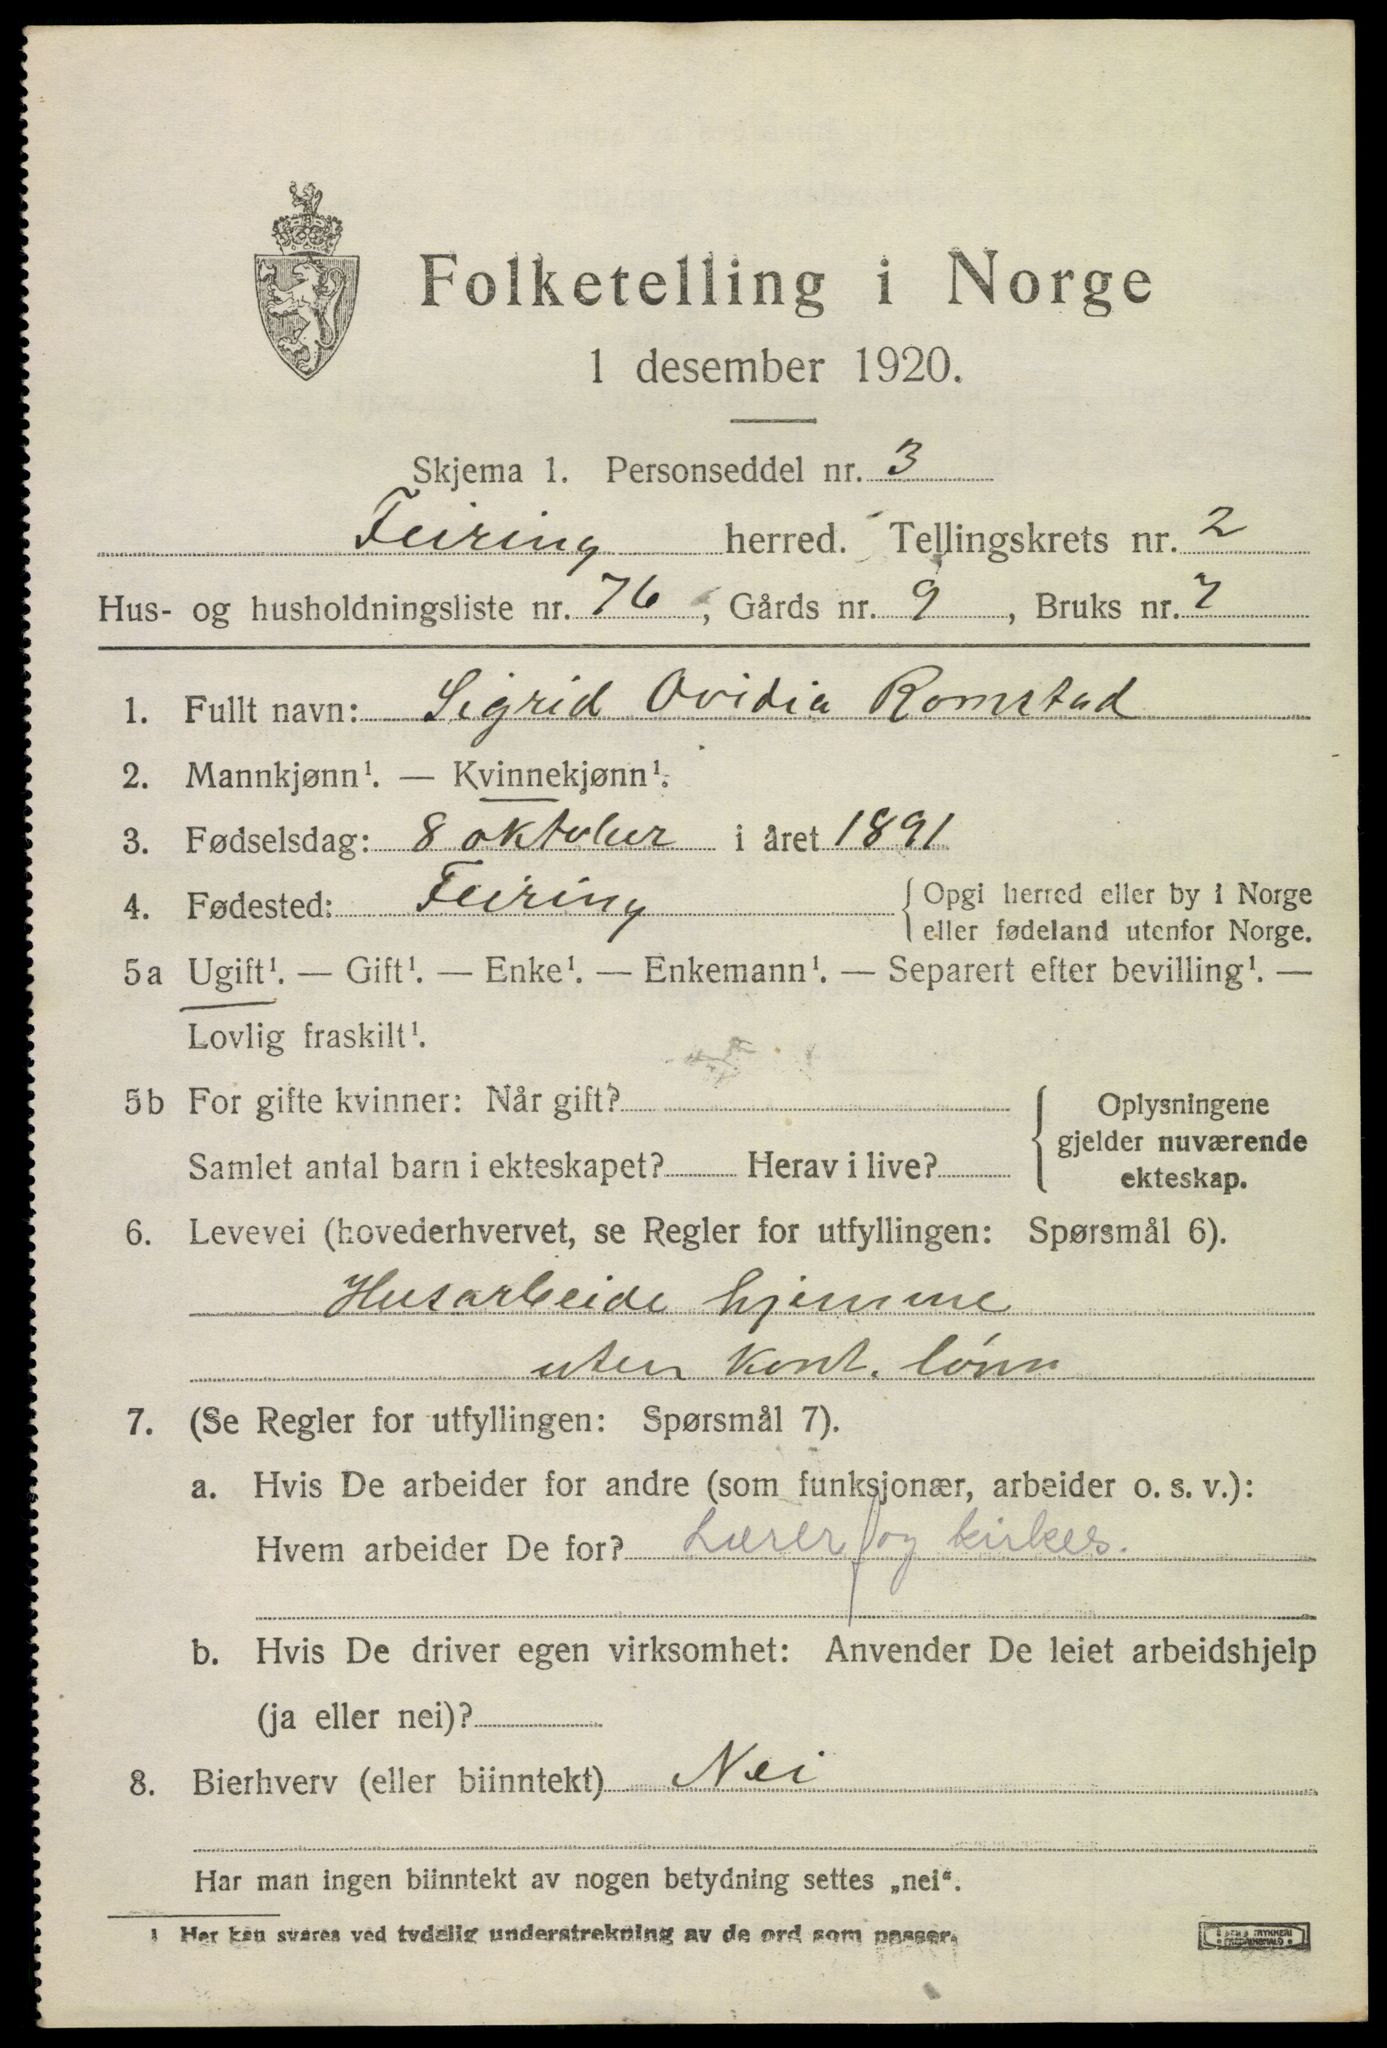 Folketelling i Norge
1 desember 1920.
Skjema 1. Personseddel nr. 3
Feiring herred. Tellingskrets nr. 2
Hus- og husholdningsliste nr. 76, Gårds nr. 9, Bruks nr. 7
1. Fullt navn: Sigrid Ovidia Romstad
2. Mannkjønn¹. — Kvinnekjønn¹.
3. Fødselsdag: 8 oktober i året 1891
4. Fødested: Feiring { Opgi herred eller by i Norge
eller fødeland utenfor Norge.
5a Ugift¹. — Gift¹. — Enke¹. — Enkemann¹. — Separert efter bevilling¹. —
Lovlig fraskilt¹.
5b For gifte kvinner: Når gift?
Samlet antal barn i ekteskapet? Herav i live?
{ Oplysningene
gjelder nuværende
ekteskap.
6. Levevei (hovederhvervet, se Regler for utfyllingen: Spørsmål 6).
Husarbeide hjemme
uten kont. lønn
7. (Se Regler for utfyllingen: Spørsmål 7).
a. Hvis De arbeider for andre (som funksjonær, arbeider o. s. v.):
Hvem arbeider De for? Lærer og kirkes.
b. Hvis De driver egen virksomhet: Anvender De leiet arbeidshjelp
(ja eller nei)?
8. Bierhverv (eller biinntekt) Nei
Har man ingen biinntekt av nogen betydning settes „nei“.
¹ Her kan svares ved tydelig understrekning av de ord som passer.